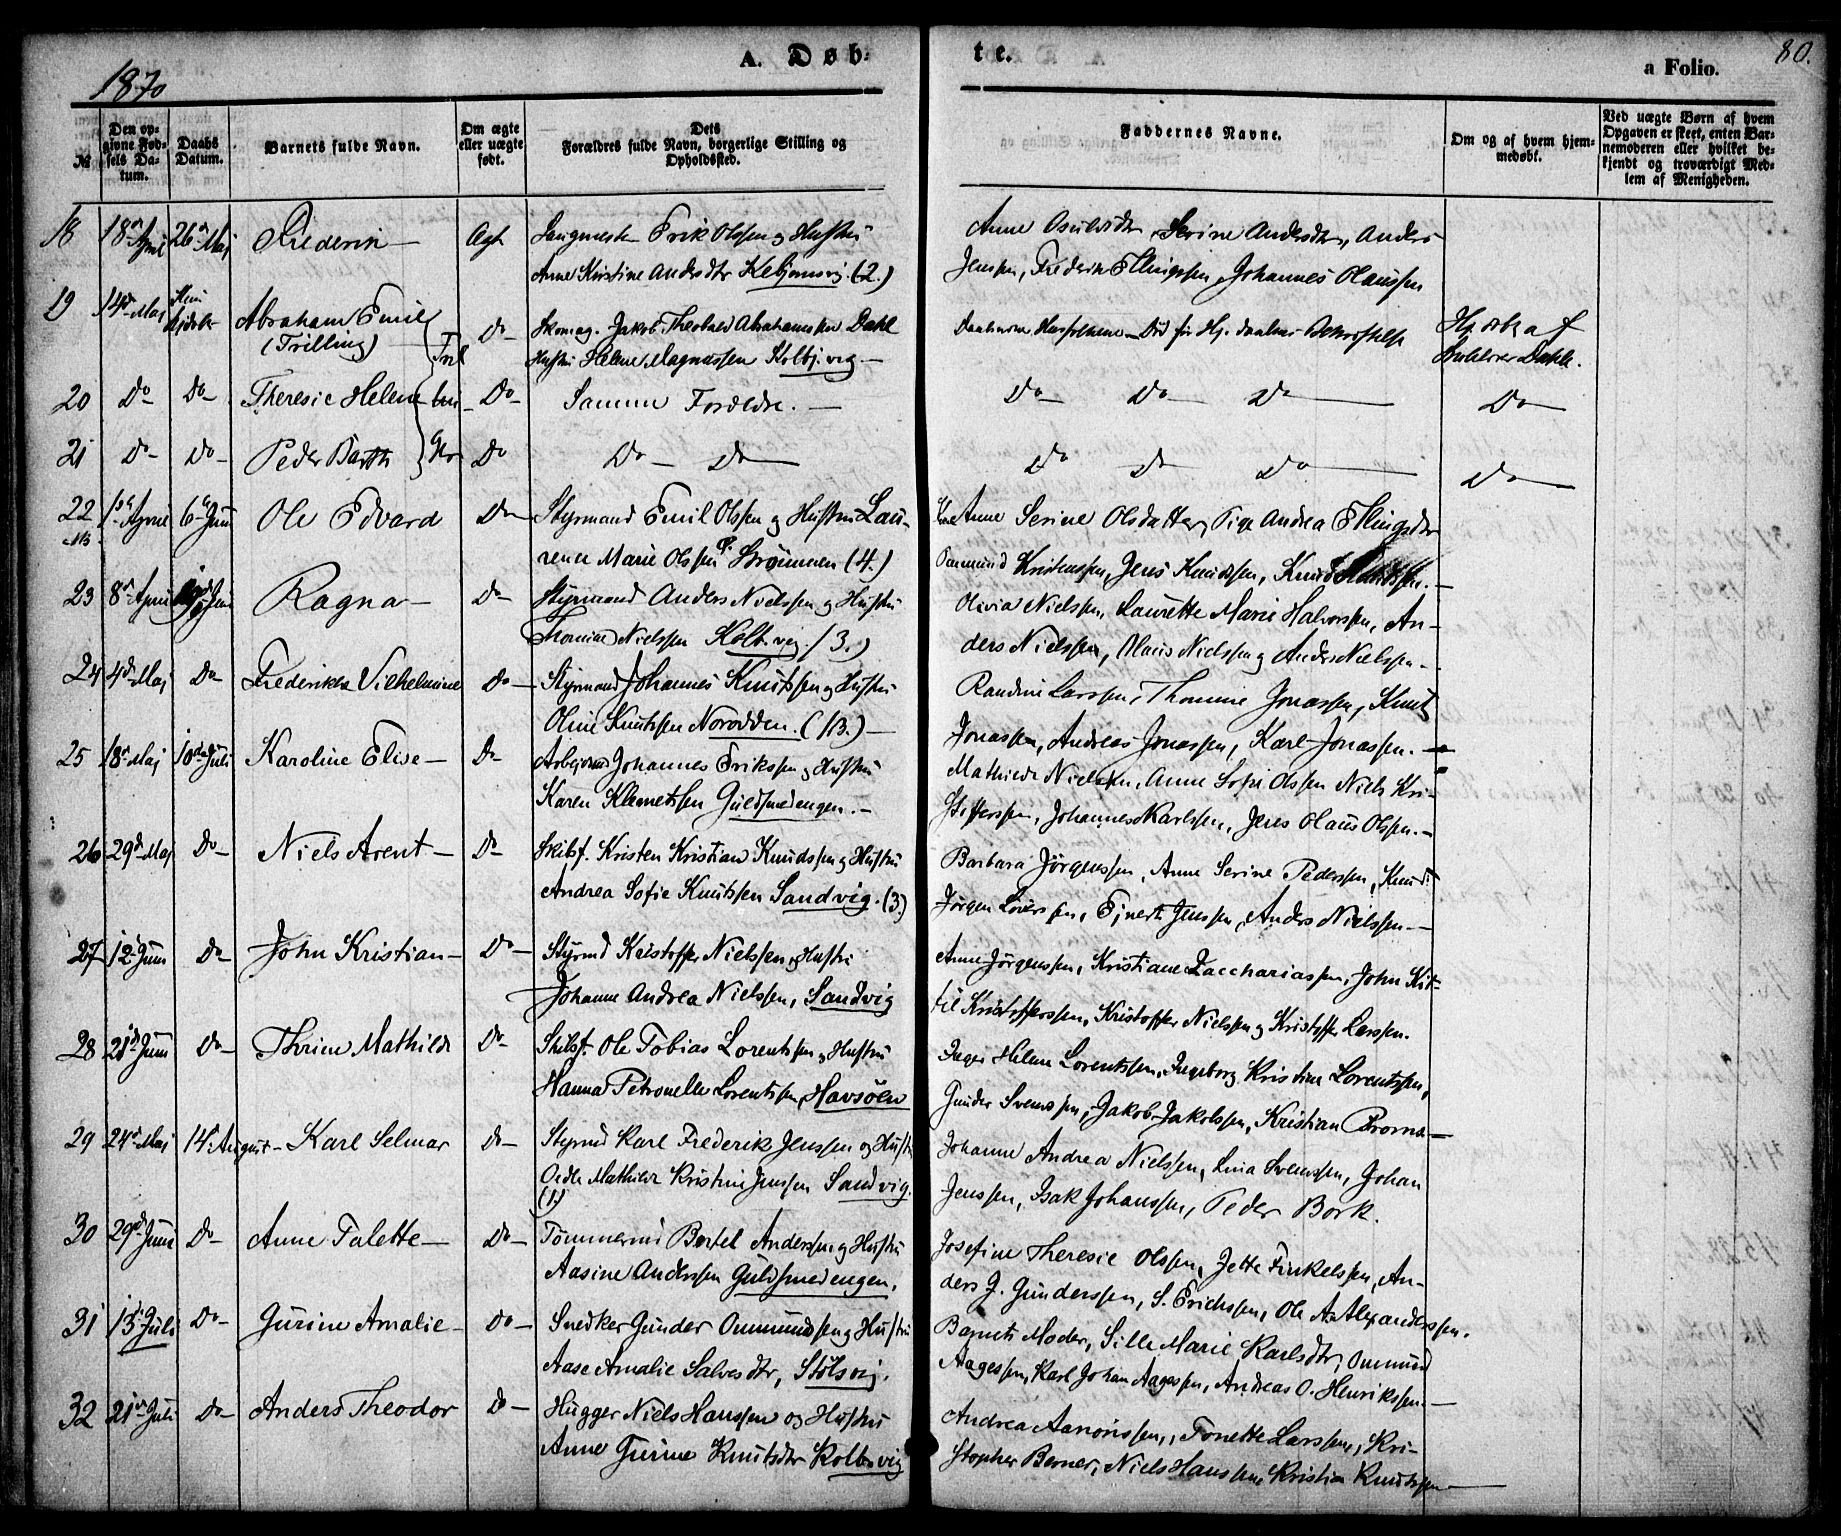 1870
A. Døb-
te.
a Folio.
80.
№
Den op-
givne Fød-
sels Da-
tum.
Daabs
Datum.
Barnets fulde Navn.
Om ægte
eller uægte
født.
Dets
Forældres fulde Navn, borgerlige Stilling og
Opholdssted.
Faddernes Navne.
Om og af hvem hjem-
medøbt.
Ved uægte Børn af hvem
Opgaven er skeet, enten Bar-
nemoderen eller hvilket be-
kjendt og troværdigt Med-
lem af Menigheden.
18 18de April 26de Maj Frederik — Ægt Erik Olssen og Hustru
Anne Kirstine Andersdtr (2.)
Anne Serine Andersdtr, Anders
Jenssen, Frederik Ellingssen, Johannes Olaussen
19 14de Maj Abraham Emil Do Skomag. Jakob Theobald Abrahamssen Dahl
(Trilling)
Hustru Helene Magnussen Kolbjvig —
Hjdøbt af
Dahle.
20 Do Do Theresie Helene Do Samme Forældre. —
Do Do Do Do
21 Do Do Peder Barth Do Do Do
Do Do Do Do
22 1ste April 6te Juni Ole Edvard Do Styrmand Emil Olssen og Hustru Lau-
rence Marie Olssen (4.)
Anne Serine Olsdatter, Pige Andrea Ellingsdtr
Kristenssen, Jens Knudssen,
23 8de April Juni Ragna — Do Styrmand Anders Nielssen og Hustru
Nielssen Kolbvig. (3.)
Olivia Nielssen, Laurette Marie Halvorssen, An-
ders Nielssen, Olaus Nielssen og Anders Nielssen —
24 4de Maj Do Frederikke Vilhelmine Do Styrmand Johannes Knutssen og Hustru
Oline Knutssen Norodden. (13.) —
Randine Larssen, Thomine Jonassen, Knut
Jonassen, Andreas Jonassen, Karl Jonassen. —
25 18de Maj 10de Juli Karoline Elise — Do Johannes Erikssen og Hustru
Karen Klemetssen Guldsmedengen. —
Mathilde Nielssen, Anne Sofie Olssen Niels Kri-
stofferssen, Johannes Karlssen, Jens Olaus Olssen. —
26 29de Maj Do Niels Arent — Do Skibsf. Kristen Kristian Knudssen og Hustru
Andrea Sofie Knutssen Sandvig. (3.)
Barbara Jørgenssen, Anne Serine Pederssen, Knud
Jørgen Ejnert Jenssen, Anders Nielssen —
27 12te Juni Do John Kristian — Do Styrmd Kristoffer Nielssen og Hustru
Johanne Andrea Nielssen, Sandvig
Anne Jørgenssen, Kristiane Zacchariassen, John Kit-
til Kristofferssen, Kristoffer Nielssen og Kristoffer Larssen.
28 21de Juni Do Thrine Mathilde Do Skibsf. Ole Tobias Lorentssen og Hustru
Hanna Petronelle Lorentssen, Havsøen
Inger Helene Lorentssen, Ingeborg Kristine Lorentssen,
Gunder Svenssen, Jakob Jakobssen, Kristian Broma —
29 24de Maj 14de August — Karl Selmar Do Styrmd Karl Frederik Jenssen og Hustru
Mathilde Kristine Jenssen Sandvig.
(1)
Johanne Andrea Nielssen, Lina Svenssen, Johan
Jenssen, Isak Johanssen, Peder Bork.
30 29de Juni Do Anne Talette — Do Tømmermd Bertel Anderssen og Hustru
Aasine Anderssen Guldsmedengen.
Josefine Theresie Olssen, Jette Finkelssen, An-
ders J. Gunderssen, S. Erichssen, Ole A. Alexanderssen.
31 13de Juli Do Gurine Amalie — Do Snedker Gunder Ommundssen og Hustru
Aase Amalie Salvesdtr, Stølsvig.
Barnets Moder, Sille Marie Karlsdtr, Ommund
Aagessen, Karl Johan Aagessen, Andreas O. Henrikssen. —
32 21de Juli Do Anders Theodor Do Hugger Niels Hanssen og Hustru
Anne Gurine Knutsdtr Kolbvig
Andrea Aanonssen, Tonette Larssen, Kri-
stopher Berner, Niels Hanssen, Kristian Knudssen —